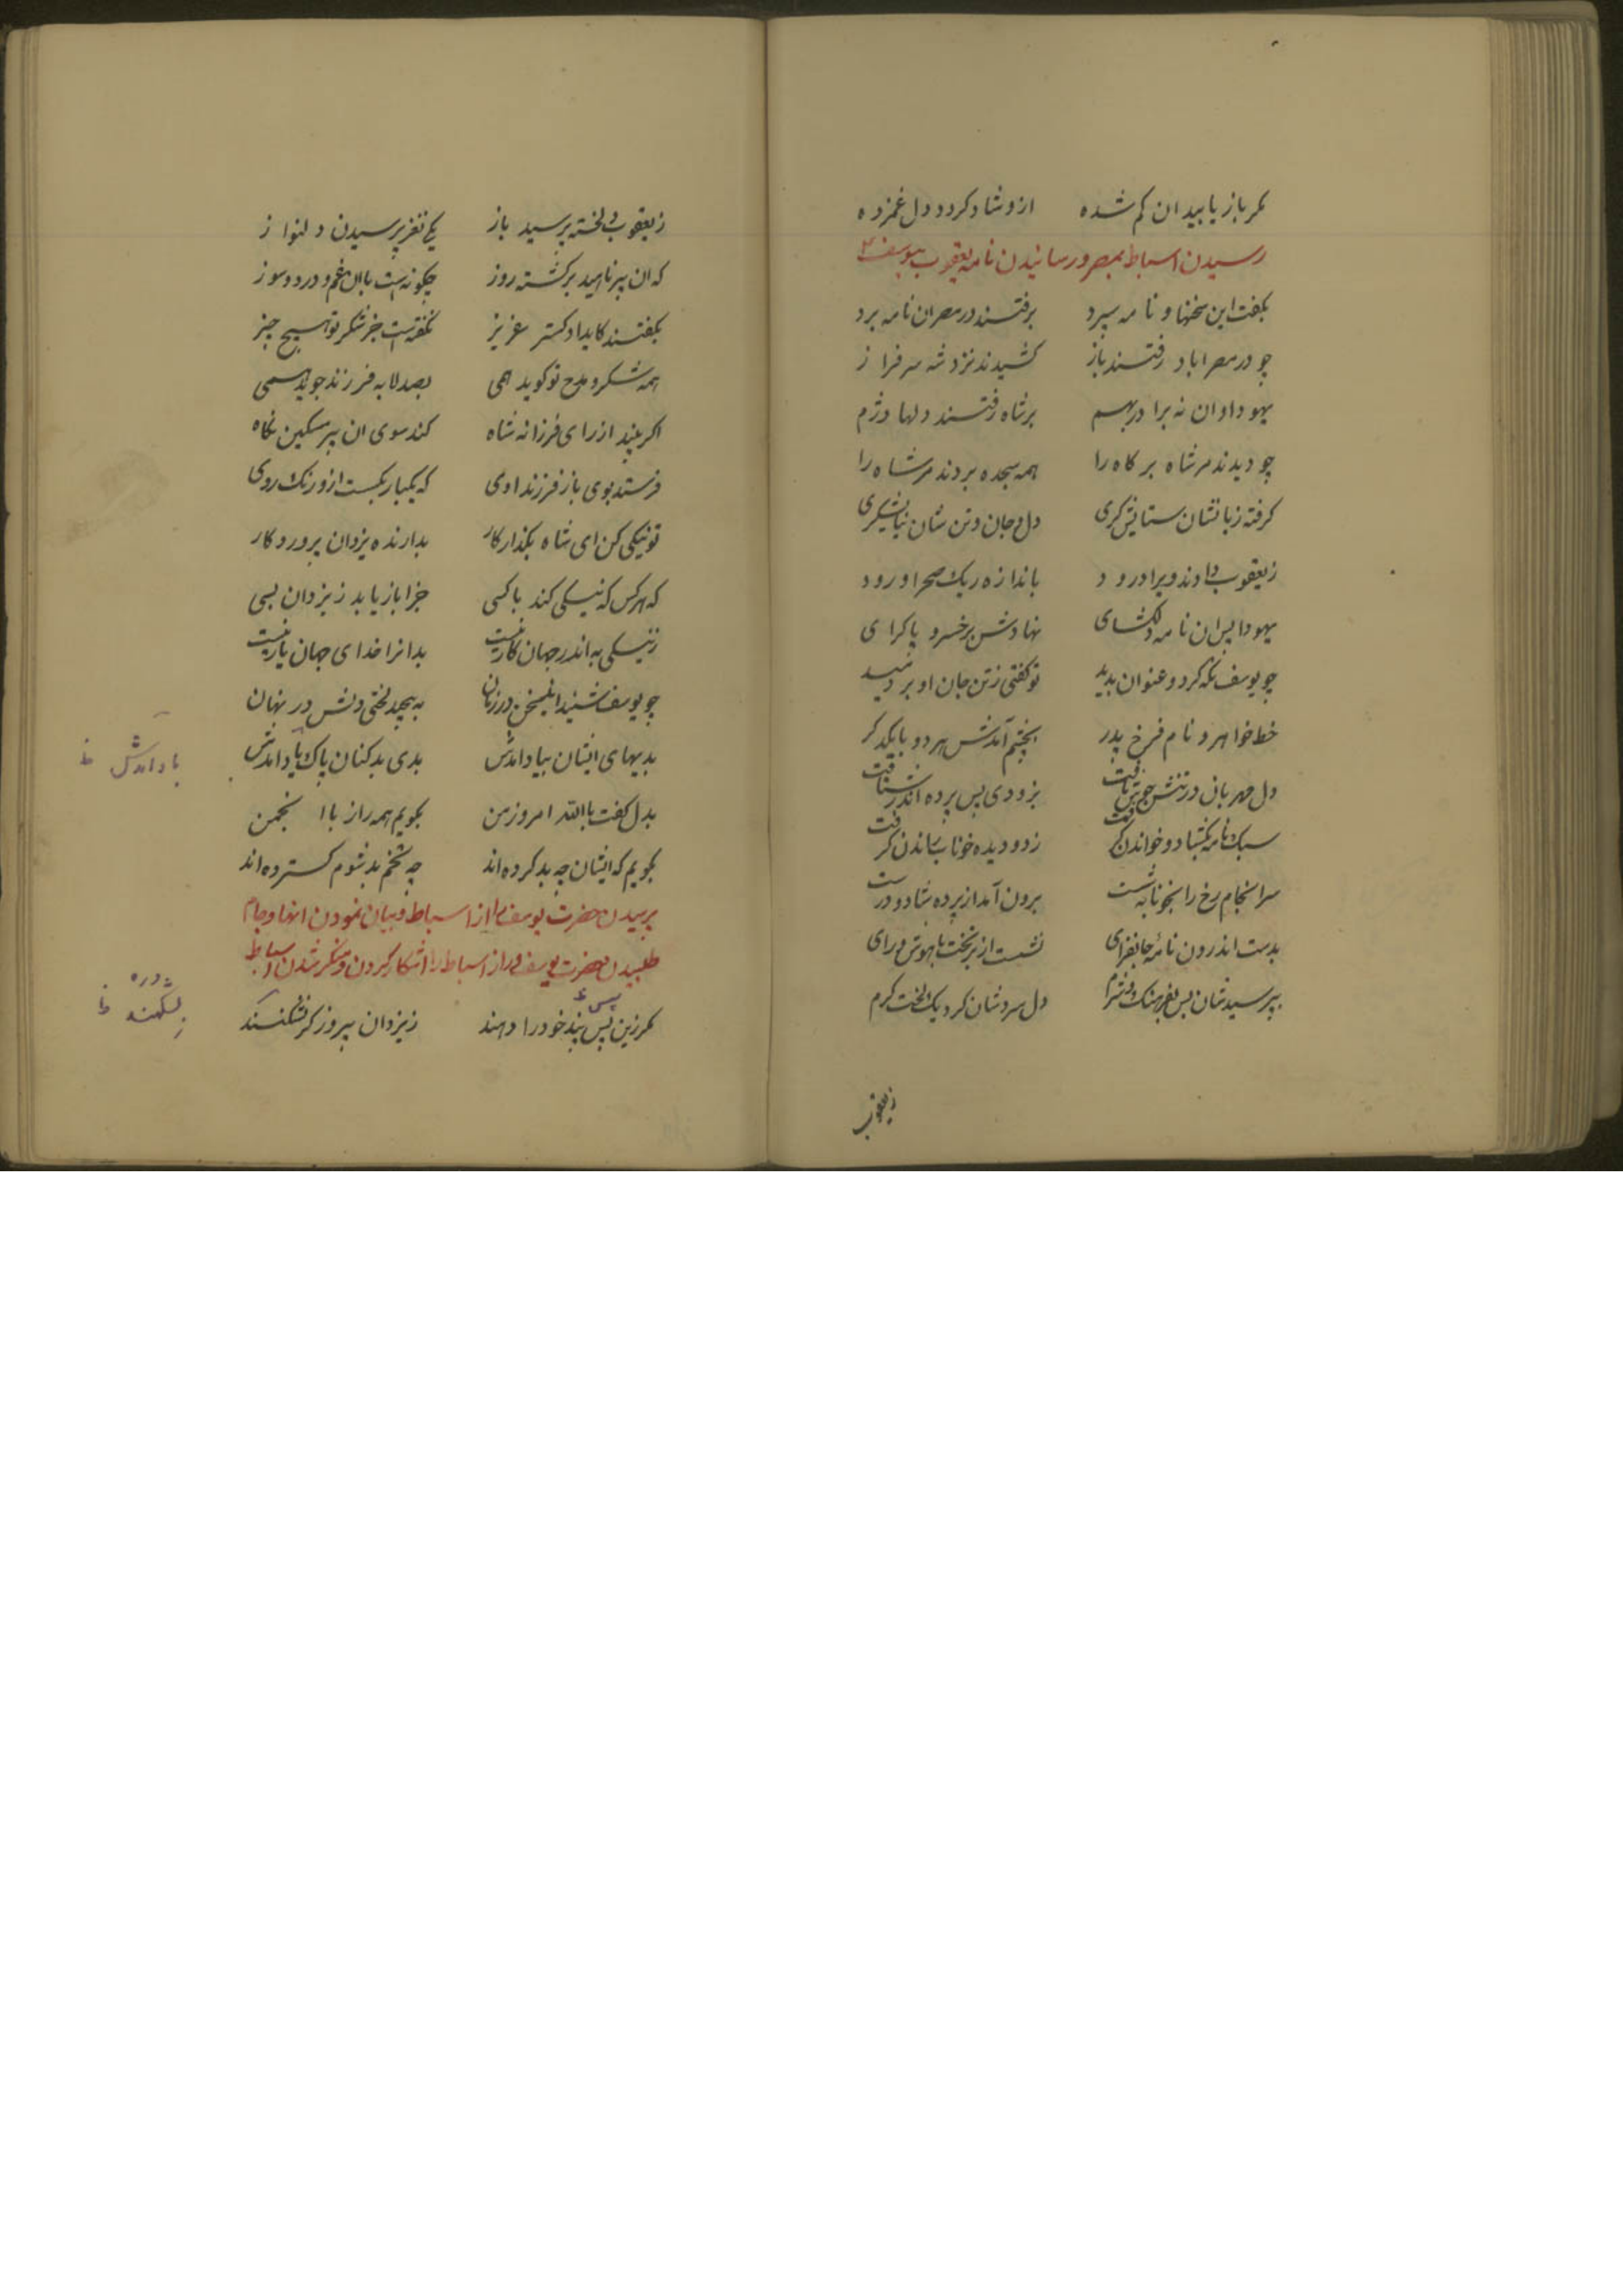 مکر باز یابید ان کم شده ازو شاد کردد دل غمزده
رسیدن اسباط بمصر و رسانیدن نامه یعقوب بیوسف ع
بکفت این سخنها و نامه سپرد برفتند در مصر ان نامه برد
چو در مصر اباد رفتند باز کشیدند نزد شه سرفراز
یهودا و ان نه برادر بهم بر شاه رفتند دلها دژم
چو دیدند مر شاه بر کاه را همه سجده بردند مر شاه را
کرفته زبانشان ستایش کری دل و جان و تن شان نیایشکری
ز یعقوب دادند ویرا درود باندازه ریک صحرا و رود
یهودا پس ان نامه دلکشای نهادش بر خسرو پاکرای
چو یوسف نکه کرد و عنوان بدید تو کفتی ز تن جان او بر دمید
خط خواهر و نام فرخ پدر بچشم آمدش هر دو با یکدکر
دل مهربان در تنش جوش یافت بزودی پس پرده اندر شتافت
سبک نامه بکشاد و خواندن کرفت ز دو دیده خوناب راندن کرفت
سرانجام رخ را بخونابه شست برون آمد از پرده شاد و درست
بدست اندرون نامه جانفزای نشست از بر تخت با هوش و رای
بپرسیدشان پس بفرهنک و شرم دل سردشان کرد یک لخت کرم
ز یعقوب
ز یعقوب دلخسته پرسید باز یکی نغز پرسیدن دلنواز
که ان پیر نامید برکشته روز چکونه است با ان غم و درد و سوز
بکفتند کای دادکستر عزیز نکفته است جز شکر تو هیچ چیز
همه شکر و مدح تو کوید همی بصد لابه فرزند جوید همی
اکر بیند از رای فرزانه شاه کند سوی ان پیر مسکین نکاه
فرستد بوی باز فرزند اوی که یکبار بکسست ازو رنک روی
تو نیکی کن ای شاه بکذار کار بدارنده یزدان پروردکار
که هر کس که نیکی کند با کسی جزا باز یابد ز یزدان بسی
ز نیکی به اندر جهان کار نیست بدانرا خدای جهان یار نیست
چو یوسف شنید این سخن در زمان به پیچید لختی دلش در نهان
بدیهای ایشان بیاد امدش بدی بد کنان پاک یاد امدش
یاد آمدش ظ
بدل کفت بالله امروز من بکویم همه راز با انجمن
بکویم که ایشان چه بد کرده اند چه تخم بد شوم کسترده اند
پرسیدن حضرت یوسف از اسباط و بیان نمودن انها و جام
طلبیدن حضرت یوسف و راز اسباط را اشکار کردن و منکر شدن اسباط
مکر زین پس پند خود را دهند ز یزدان پیروزکر نشکنند